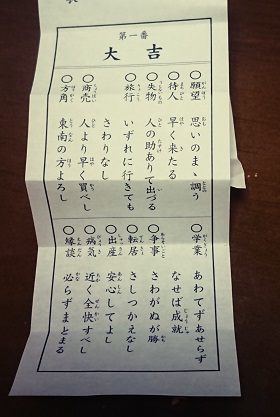 第一番
大吉
○願望 思いのまゝ調う
○待人 早く来たる
○失物 人の助ありて出づる
○旅行 いずれに行きても
さわりなし
○商売 人より早く買べし
○方角 東南の方よろし
○学業 あわてずあせらず
なせば成就
○争事 さわがぬが勝
○転居 さしつかえなし
○出産 安心してよし
○病気 近く全快すべし
○縁談 必らずまとまる